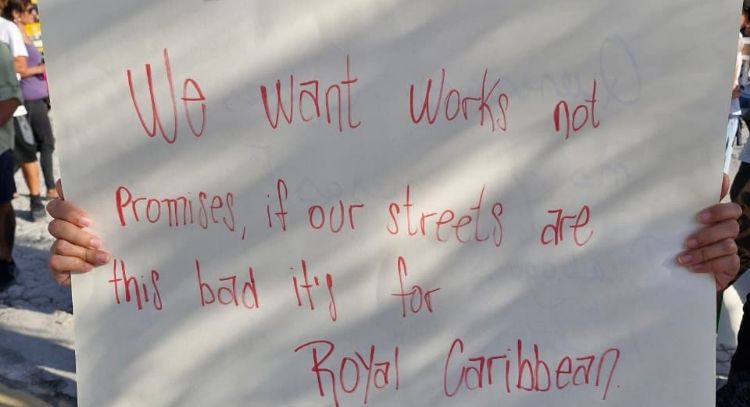 We want works not
Promises, if our streets are
this bad it's for
Royal Caribbean.